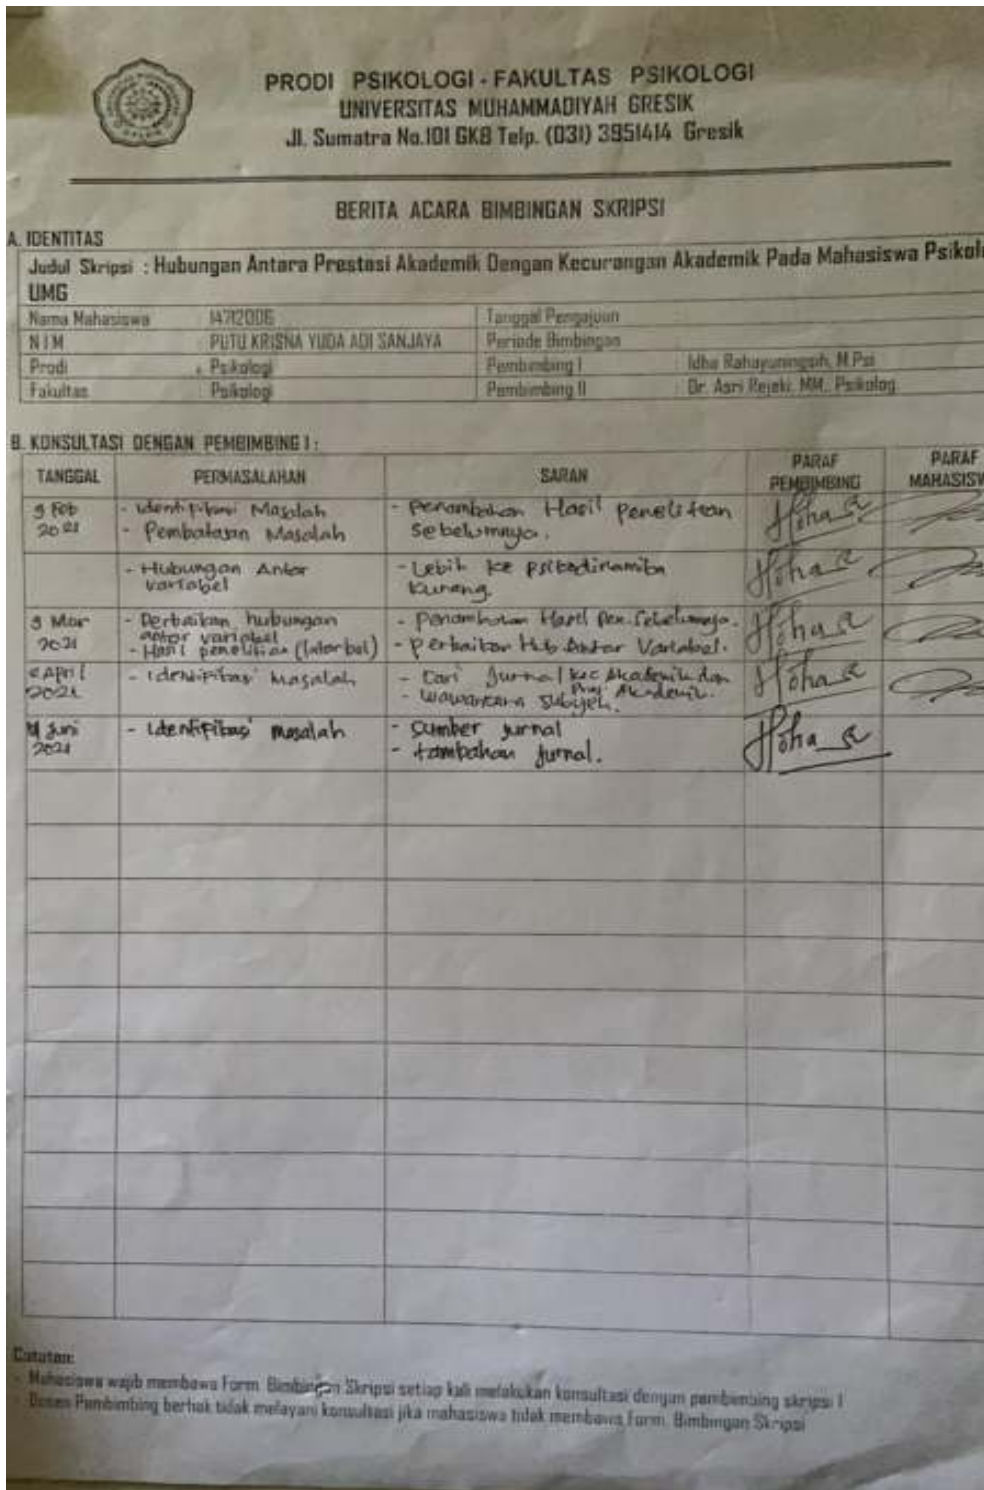 PRODI PSIKOLOGI - FAKULTAS PSIKOLOGI
UNIVERSITAS MUHAMMADIYAH GRESIK
Jl. Sumatra No.101 GKB Telp. (031) 3951414 Gresik
BERITA ACARA BIMBINGAN SKRIPSI
A. IDENTITAS
Judul Skripsi : Hubungan Antara Prestasi Akademik Dengan Kecurangan Akademik Pada Mahasiswa Psikol
UMG
Nama Mahasiswa : 14712006 Tanggal Pengajuan
N I M : PUTU KRISNA YUDA ADI SANJAYA Periode Bimbingan
Prodi : Psikologi Pembimbing I : Idha Rahayuningsih, M.Psi
Fakultas : Psikologi Pembimbing II : Dr. Asri Rejeki, MM., Psikolog
B. KONSULTASI DENGAN PEMBIMBING I :
TANGGAL PERMASALAHAN SARAN PARAF PEMBIMBING PARAF MAHASISW
9 Feb - Identifikasi Masalah - Penambahan Hasil Penelitian
2021 - Pembatasan Masalah Sebelumnya.
- Hubungan Antar - Lebih ke psikodinamika
variabel kurang
9 Mar - Perbaikan hubungan - Penambahan Hasil Pen. Sebelumnya.
2021 antar variabel - Perbaikan Hub. Antar Variabel.
- Hasil penelitian (latar bel)
April - Identifikasi masalah - Cari Jurnal Kec Akademik dan
2021 Pres Akademik.
- Wawancara Subyek.
Juni - Identifikasi masalah - Sumber jurnal
2021 - tambahan jurnal.
Catatan:
Mahasiswa wajib membawa Form. Bimbingan Skripsi setiap kali melakukan konsultasi dengan pembimbing skripsi I
Dosen Pembimbing berhak tidak melayani konsultasi jika mahasiswa tidak membawa Form. Bimbingan Skripsi